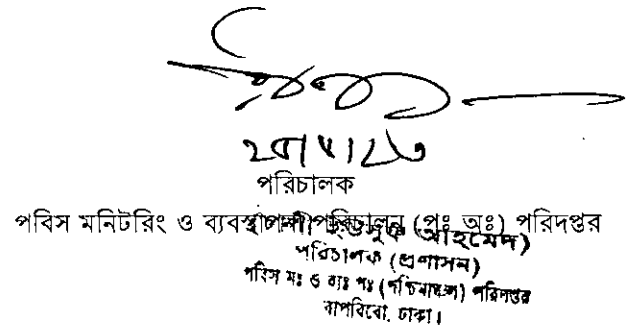 পরিচালক
পবিস মনিটরিং ও ব্যবস্থাপনা পরিচালন (পঃ অঃ) পরিদপ্তর
আহমেদ)
পরিচালক (প্রশাসন)
পবিস মঃ ও ব্যঃ পঃ (পশ্চিমাঞ্চল) পরিদপ্তর
বাপবিবো, ঢাকা।